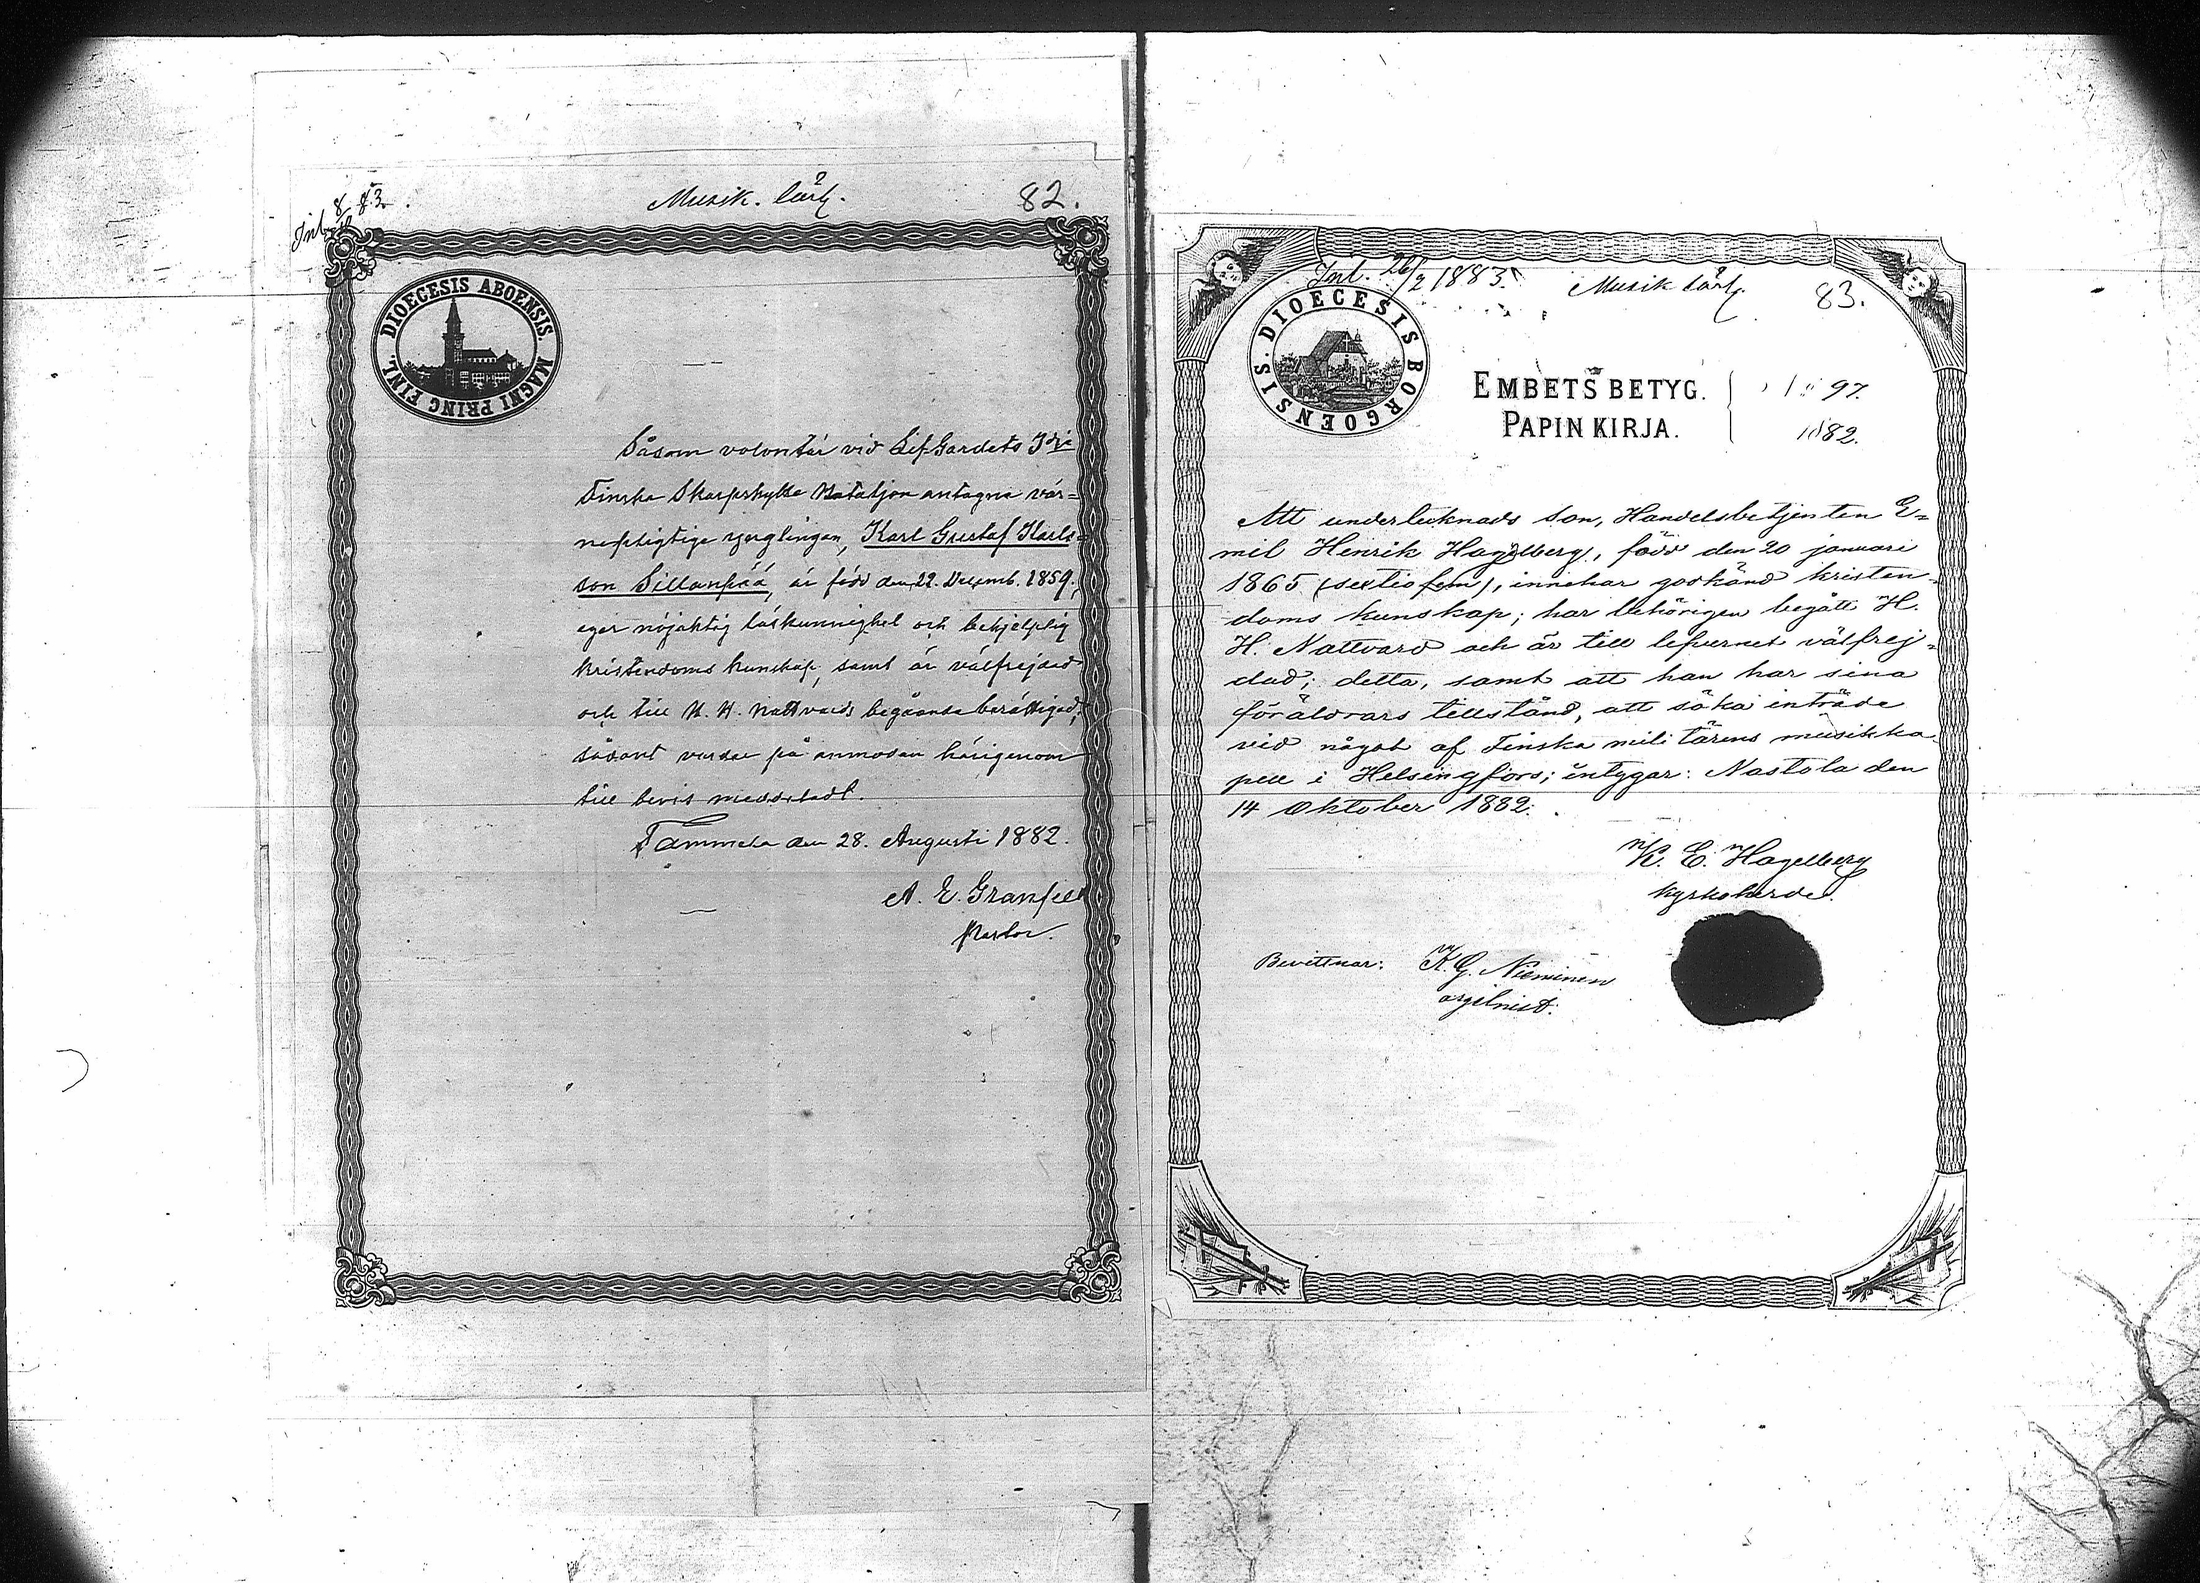 Int. 8/2 83.
Musik. lärl.
82.
DIOECESIS ABOENSIS. MAGNI PRINC FINL.
Såsom volontär vid Lif Gardets 3dje
Finska Skarpskytte Bataljon antagne vär=
nepligtige ynglingen, Karl Gustaf Karls=
son Sillanpää, är född den 22. Decemb. 1859,
eger nöjaktig läskunnighet och behjelplig
kristendoms kunskap, samt är välfrejdad
och till H. H. Nattvards begående berättigad,
sådant varder på anmodan härigenom
till bevis meddeladt.
Tammela den 28. Augusti 1882.
A. E. Granfelt
Pastor.
Int. 26/2 1883.
Musik lärl.
83.
DIOECESIS BORGOENSIS.
EMBETS BETYG.
97.
PAPIN KIRJA.
1882.
Att undertecknads son, Handelsbetjenten E=
mil Henrik Hagelberg, född den 20 januari
1865 (sextiofem), innehar godkänd kristen=
doms kunskap; har behörigen begått H.
H. Nattvard och är till lefvernet välfrej=
dad; detta, samt att han har sina
föräldrars tillstånd, att söka inträde
vid något af Finska militärens musikka=
pell i Helsingfors; intygar: Nastola den
14 Oktober 1882.
K. E. Hagelberg
kyrkoherde.
Bevittnar: K. G. Nieminen
orgelnist.